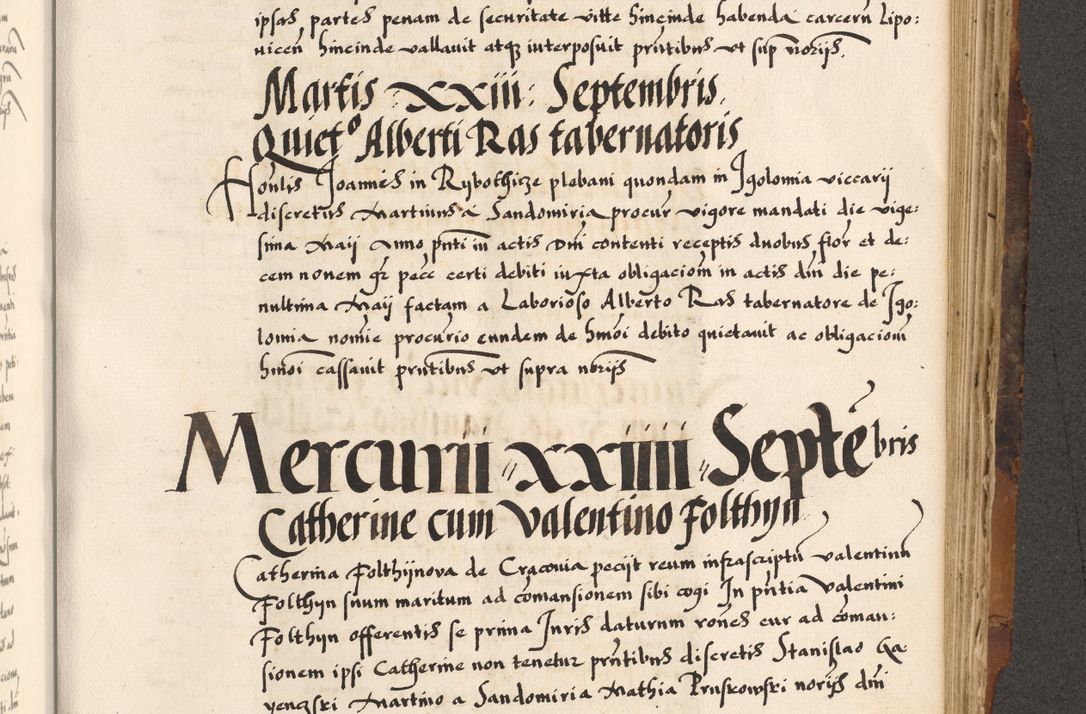 ipsas partes penam de securitate vitte hincinde habenda carcerū lipo:
vicen̄ hincinde vallavit atqz interposuit pn̄tibus vt sup norijs.
Martis : xxiii : Septembris.
Quiet⁰ Alberti Ras tabernatoris
Hon̄lis Joannes in Rybothicze plebani quondam in Jgolomia viccarij
discretus Martinus a Sandomiria procur vigore mandati die vige:
sima Maij Anno pn̄ti in actis Dn̄i contenti receptis duobus flor et de:
cem novem gr pecc̄ certi debiti iuxta obligaciom̄ in actis dn̄i die pe:
nultima Maij factam a Laborioso Alberto Ras tabernatore de Jgo:
lomia nomīe procur̄io eundem de hmōi debito quietavit ac obligaciom̄
hmōi cassavit pn̄tibus vt supra norijs
Mercurii xxiiii Septēbris
Catherine cum Valentino Folthyn
Catherina Folthijnova de Cracovia pecijt reum infrascriptū Valentinū
Folthyn suum maritum ad cōmansionem sibi cogi In pn̄tia Valentini
Folthyn offerentis se prima Juris daturum rōnes cur ad cōman:
sionem ipsi Catherine non tenetur pn̄tibus discretis Stanislao Ga
yenczski Martino a Sandomiria Mathia Pruskowski norijs dn̄i